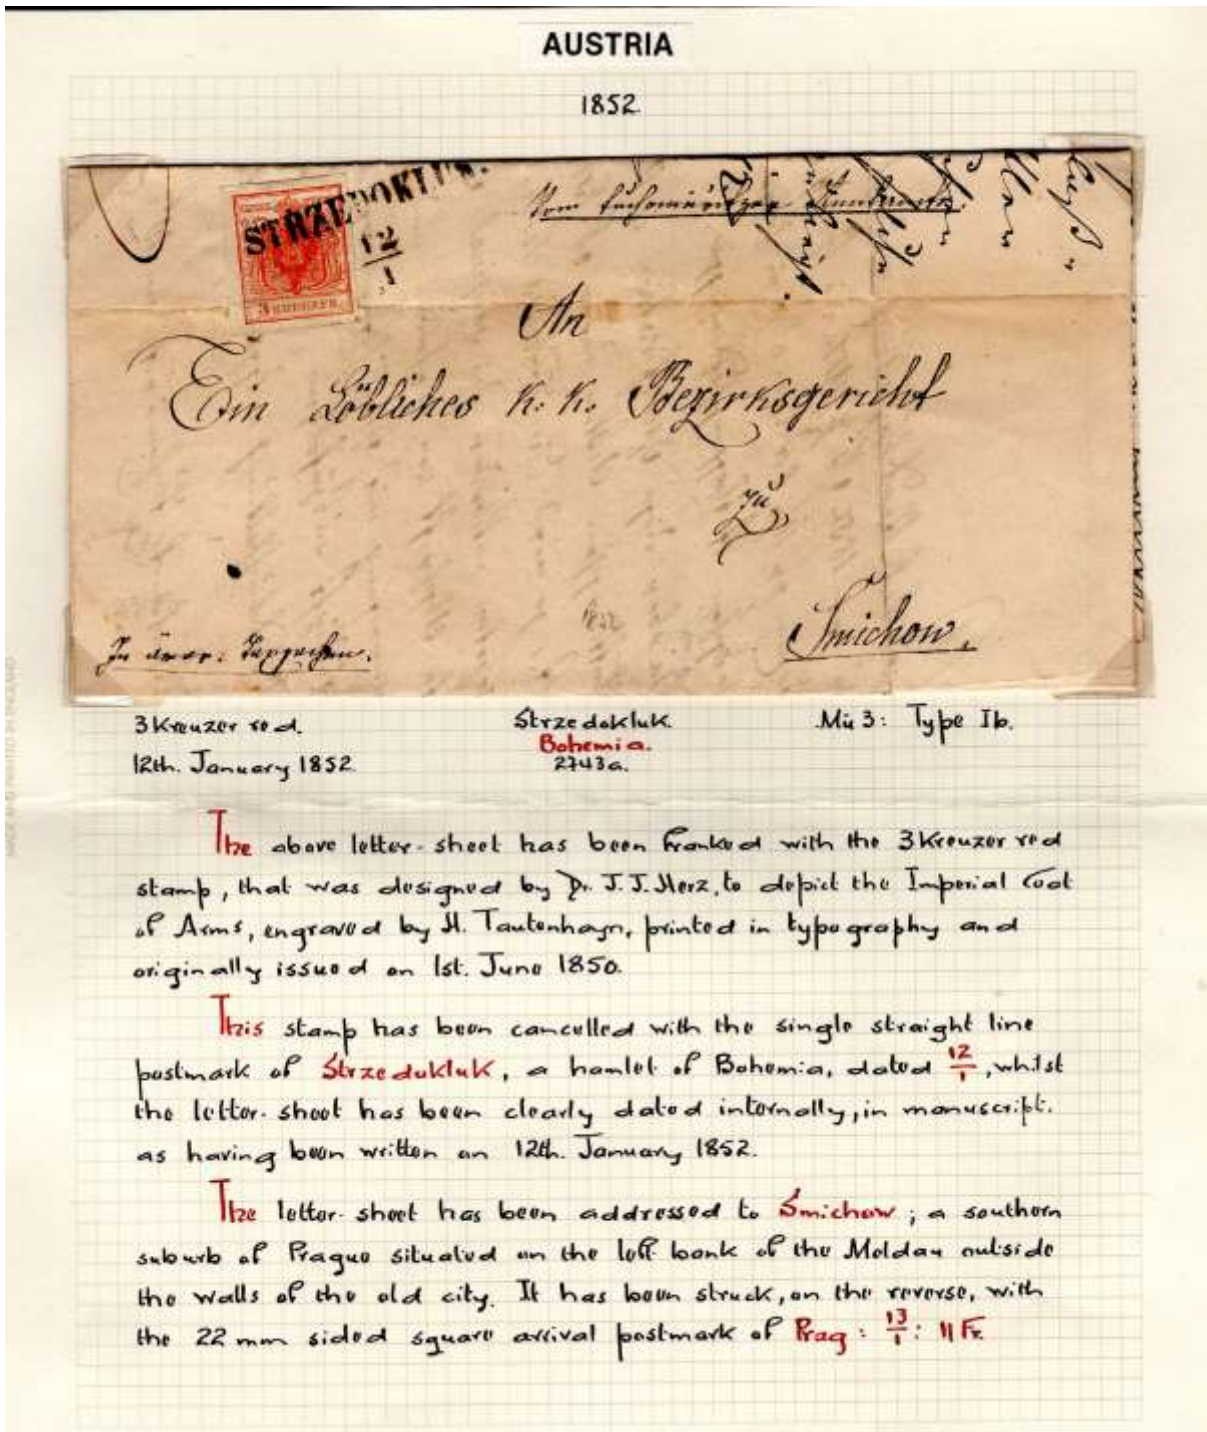 AUSTRIA
1852.
STRZEDOKLUK.
12
1
3 KREUZER.
Vom
An
Ein Löbliches k: k. Bezirksgericht
zu
Smichow.
1852
In
3 Kreuzer red.
Strzedokluk.
Mü 3: Type Ib.
Bohemia.
12th. January 1852.
2743a.
The above letter-sheet has been franked with the 3 Kreuzer red
stamp, that was designed by Dr. J. J. Herz, to depict the Imperial Coat
of Arms, engraved by H. Tautenhayn, printed in typography and
originally issued on 1st. June 1850.
This stamp has been cancelled with the single straight line
postmark of Strzedokluk, a hamlet of Bohemia, dated 12/1, whilst
the letter-sheet has been clearly dated internally, in manuscript.
as having been written on 12th. January 1852.
The letter-sheet has been addressed to Smichow; a southern
suburb of Prague situated on the left bank of the Moldau outside
the walls of the old city. It has been struck, on the reverse, with
the 22 mm sided square arrival postmark of Prag: 13/1: 11 F.